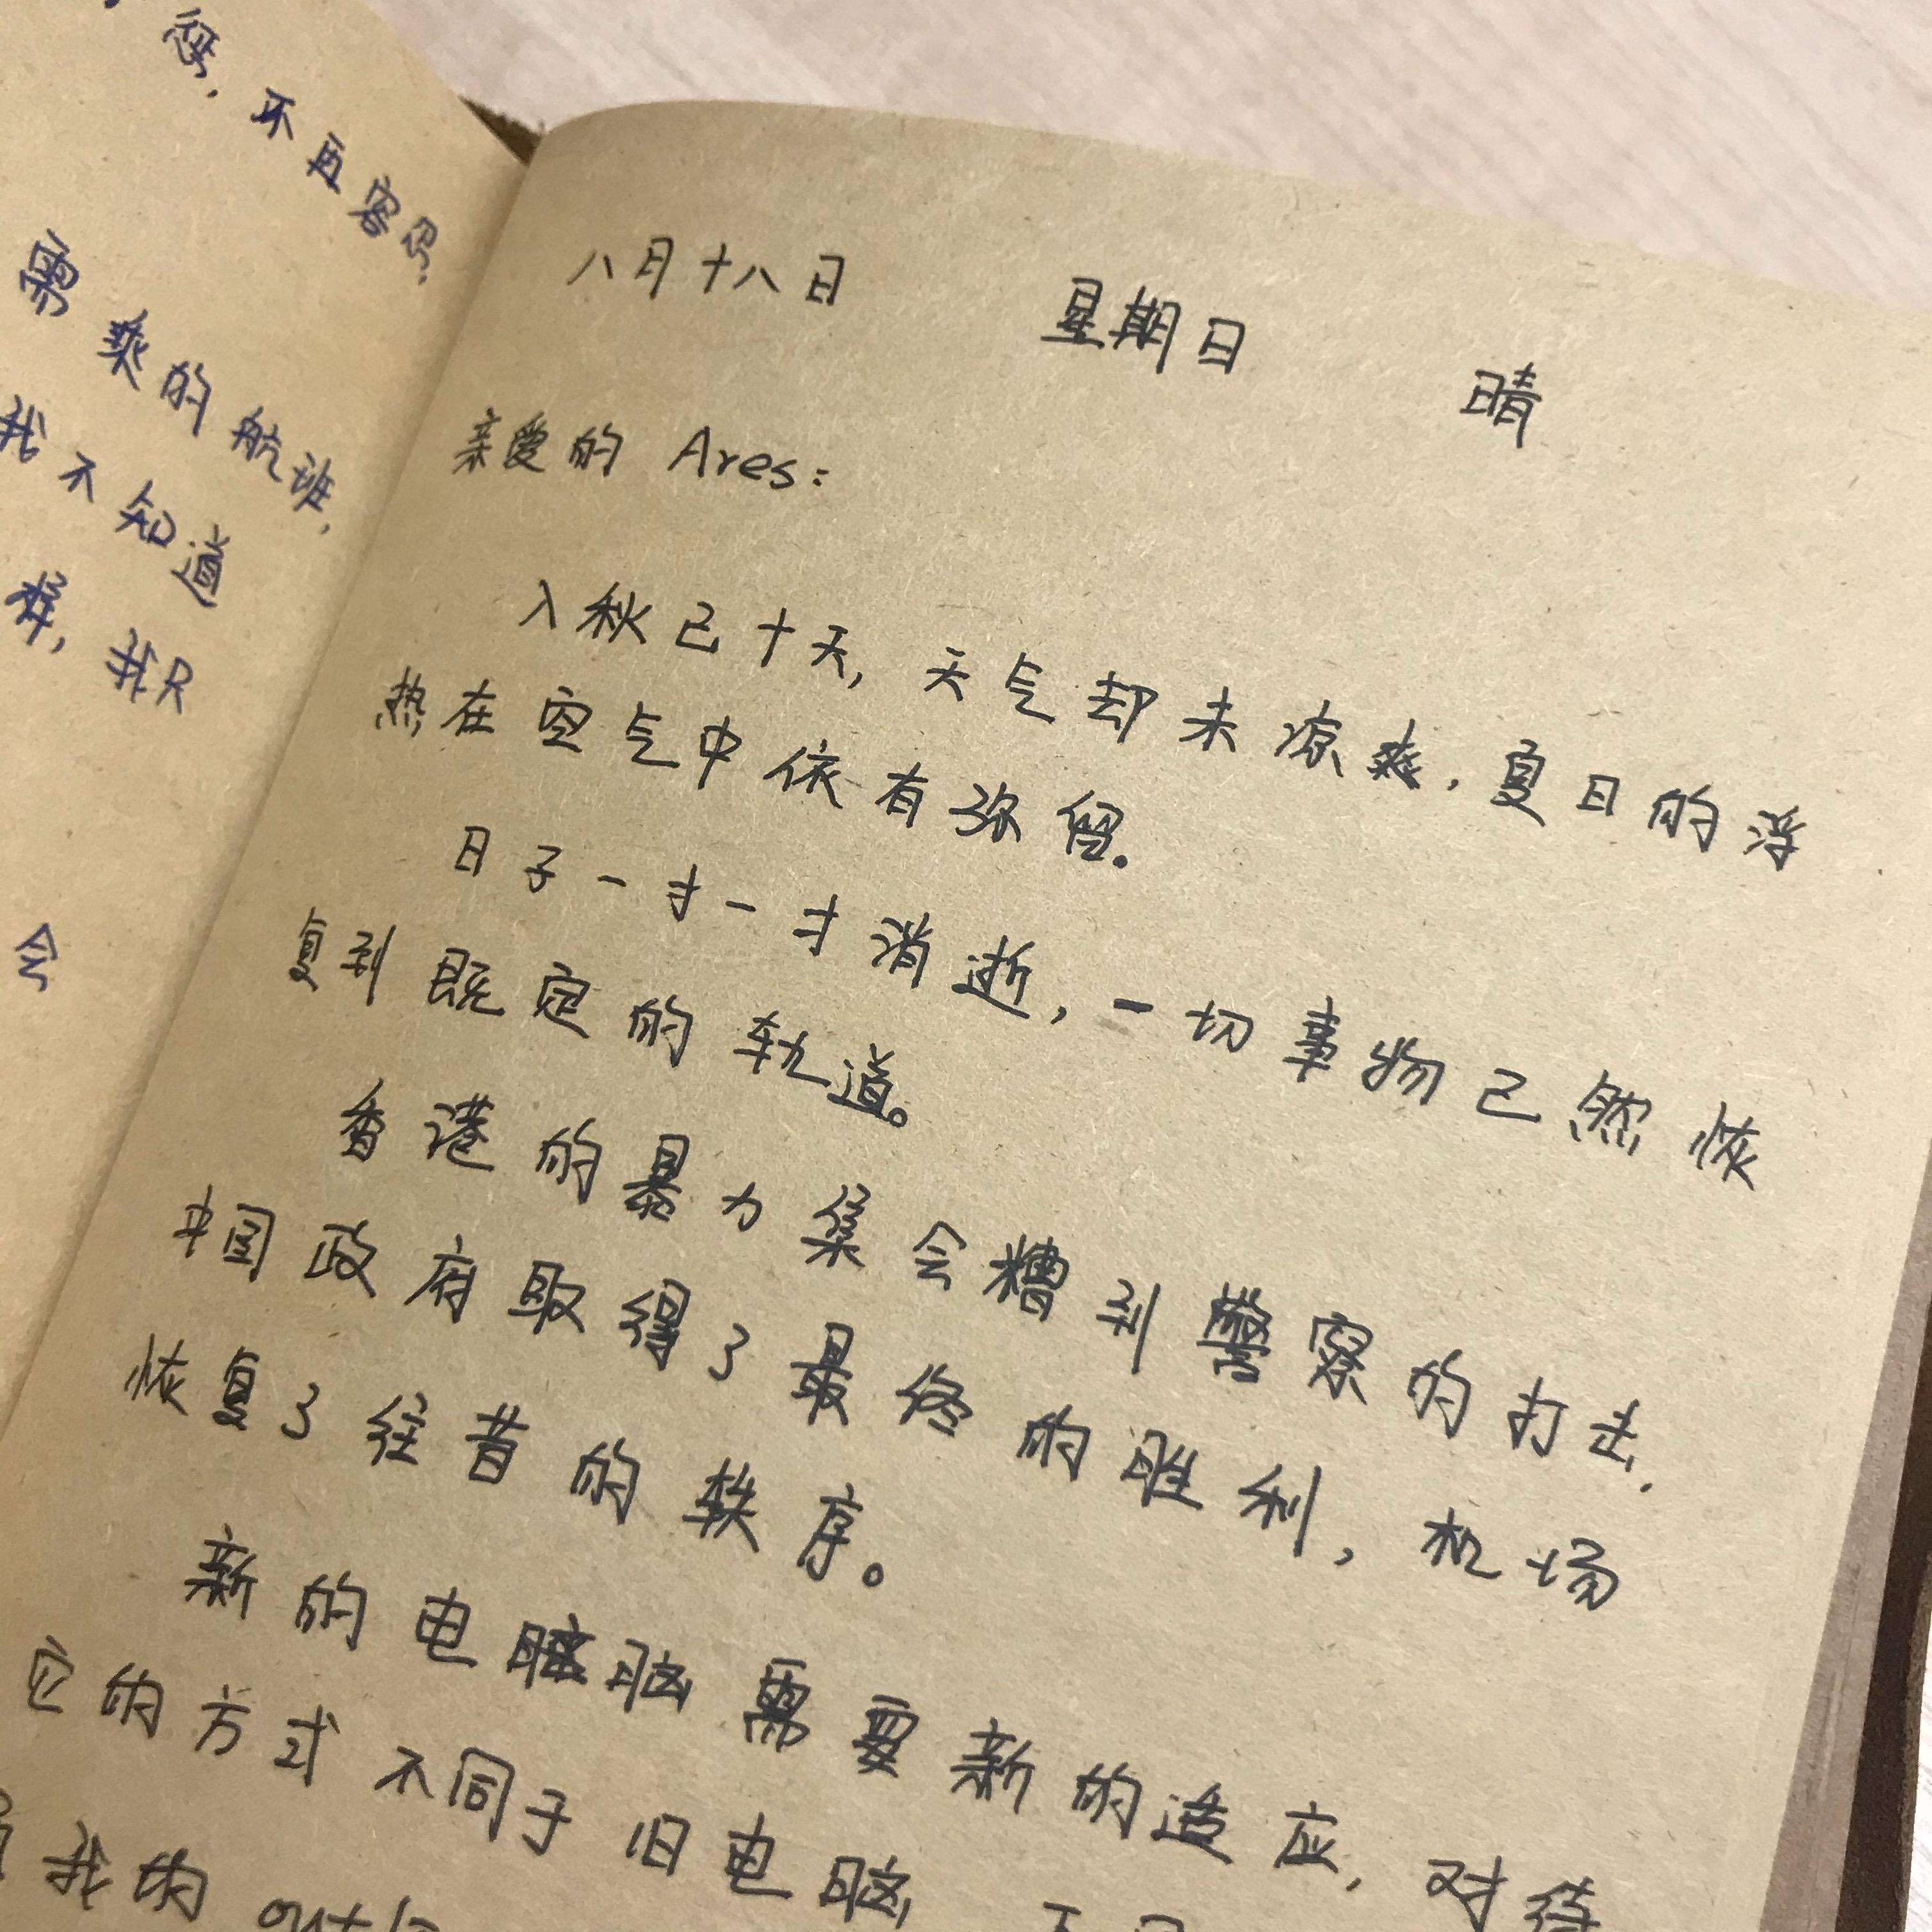 不再容易,
需
乘的航班,
我不知道
样,我只
会
八月十八日 星期日 晴
亲爱的 Ares:
入秋已十天,天气却未凉爽.夏日的浮
热在空气中依有弥留.
日子一寸一寸消逝,一切事物已然恢
复到既定的轨道。
香港的暴力集会糟到警察的打击.
中国政府取得了最终的胜利,机场
恢复了往昔的轶序。
新的电脑需要新的适应,对待
它的方式不同于旧电脑
我的